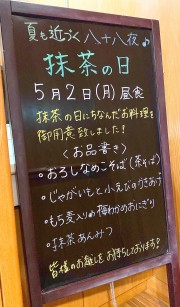 夏も近づく八十八夜♪
抹茶の日
5月2日(月)昼食
抹茶の日にちなんだお料理を
御用意致しました!
〈お品書き〉
・おろしなめこそば(茶そば)
・じゃがいもと小えびのかきあげ
・もち麦入りの梅わかめおにぎり
・抹茶あんみつ
皆様のお越しをお待ちしております!